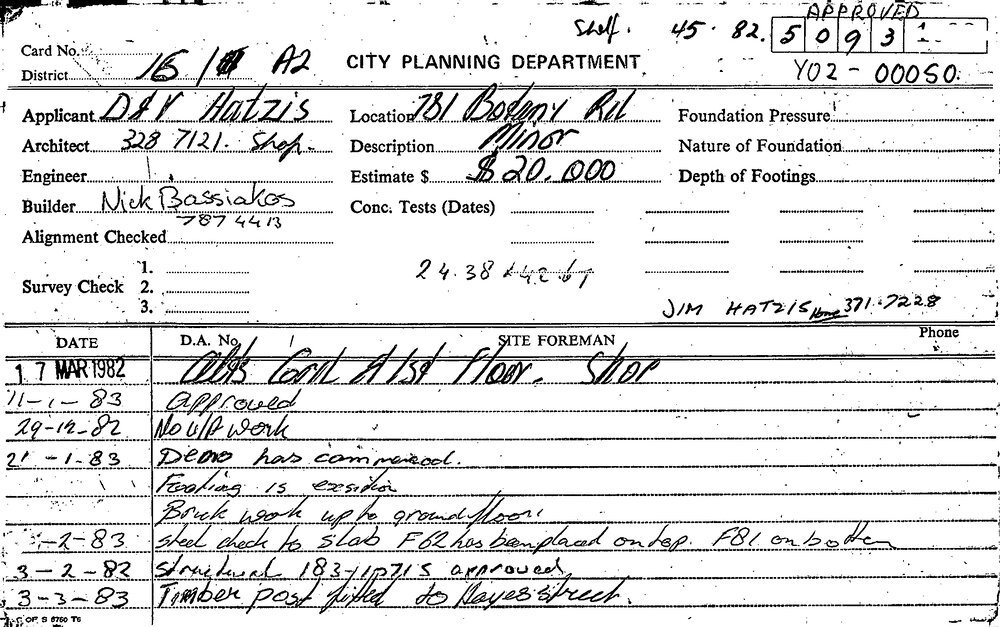 APPROVED
Shelf. 45.82. 5093
Y02-00050.
Card No.
District 15/ A2
CITY PLANNING DEPARTMENT
Applicant D&V Hatzis Location 781 Botany Rd Foundation Pressure
Architect 328 7121. Shop. Description Minor Nature of Foundation
Engineer Estimate $ $20.000 Depth of Footings
Builder Nick Bassiakos Conc. Tests (Dates)
787 4413
Alignment Checked
1.
24.38
Survey Check 2.
3.
JIM HATZIS Home 371.7228
DATE D.A. No. SITE FOREMAN Phone
17 MAR 1982 Alts Cond 1st Floor. Shop
11-1-83 approved
29-12-82 No work
21-1-83 Demo has commenced.
Footing is
Brick work up to ground floor.
-2-83 steel check to slab F62 has been placed on top. F81 on bottom
3-2-82 structural approved
3-3-83 Timber post fitted to Hayes street.